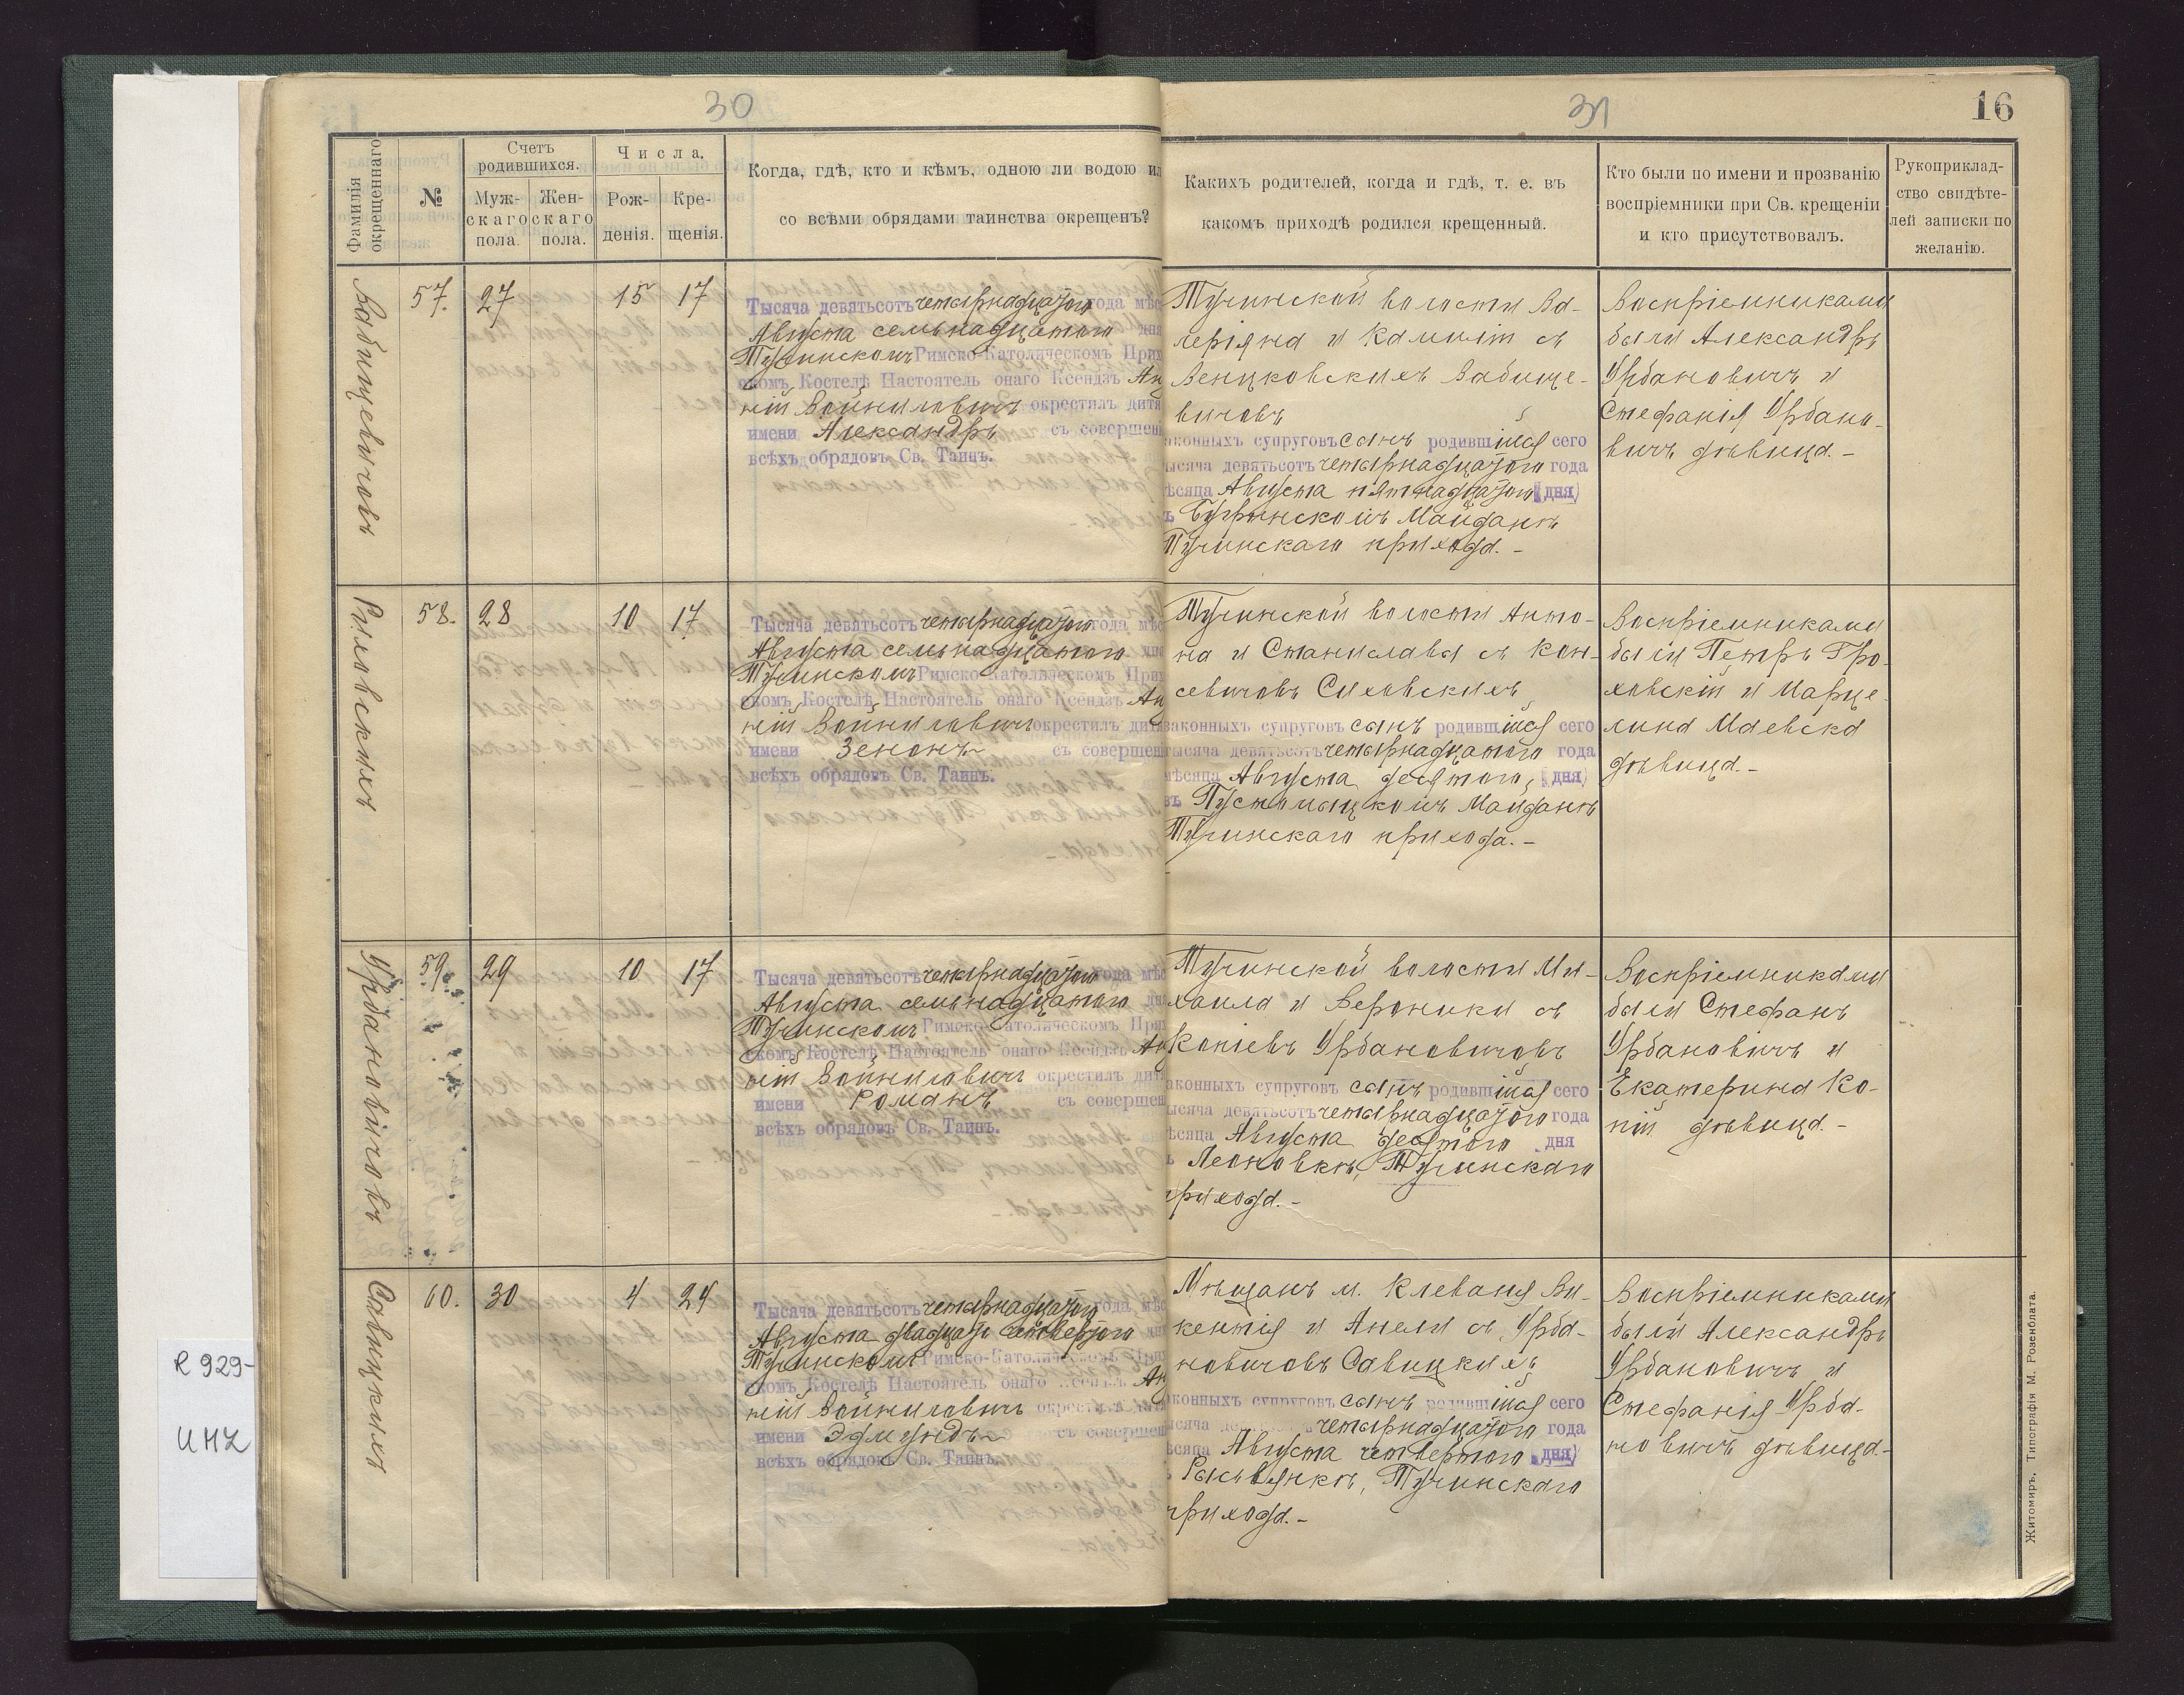 30
Фамилія окрещеннаго
№
Счетъ родившихся.
Муж-скаго пола.
Жен-скаго пола.
Числа.
Рож-денія.
Кре-щенія.
Когда, гдѣ, кто и кѣмъ, одною ли водою ил
со всѣми обрядами таинства окрещенъ?
31
16
Какихъ родителей, когда и гдѣ, т. е. въ
какомъ приходѣ родился крещенный.
Кто были по имени и прозванію
воспріемники при Св. крещеніи
и кто присутствовалъ.
Рукоприклад-
ство свидѣте-
лей записки по
желанію.
Вабищевичовъ
57. 27 15 17
Тысяча девятьсотъ четырнадцатого года мѣс
Августа семьнадцатого дня
Тучинскомъ Римско-Католическомъ Прих
скомъ Костелѣ Настоятель онаго Ксендзъ Ан
ній Войниловичъ окрестилъ дитя
имени Александръ съ совершен
всѣхъ обрядовъ Св. Таинъ.
Тучинской волости Ва-
леріяна и Камиліи съ
Венцковскихъ Вабище-
вичовъ
аконныхъ супруговъ сынъ родившійся сего
ысяча девятьсотъ четырнадцатого года
ѣсяца Августа пятнадцатого дня
ъ Бугринскомъ Майданѣ
Тучинскаго прихода.-
Воспріемниками
были Александръ
Урбановичъ и
Стефанія Урбано-
вичъ дѣвица.-
58. 28 10 17
Тысяча девятьсотъ четырнадцатого года мѣс
Августа семьнадцатого дня
Тучинскомъ Римско-Католическомъ Прих
скомъ Костелѣ Настоятель онаго Ксендзъ Ан
ній Войниловичъ окрестилъ дитя
имени Зенонъ съ совершен
всѣхъ обрядовъ Св. Таинъ.
Тучинской волости Анто-
на и Станиславы съ Кон-
севичовъ
законныхъ супруговъ сынъ родившійся сего
тысяча девятьсотъ четырнадцатого года
мѣсяца Августа десятого, дня
въ Пустомытскомъ Майданѣ
Тучинскаго прихода.-
Воспріемниками
были Петръ Гро-
ховскій и Марце-
лина Маевска
дѣвица.-
Урбановичовъ
59. 29 10 17
Тысяча девятьсотъ четырнадцатого года мѣс
Августа семьнадцатого дня
Тучинскомъ Римско-Католическомъ Прих
скомъ Костелѣ Настоятель онаго Ксендзъ Ан
ній Войниловичъ окрестилъ дитя
имени Романъ съ совершен
всѣхъ обрядовъ Св. Таинъ.
Тучинской волости Ми-
хаила и Вероники съ
Копіевъ Урбановичовъ
аконныхъ супруговъ сынъ родившійся сего
ысяча девятьсотъ четырнадцатого года
ѣсяца Августа десятого дня
ъ Леоновкѣ, Тучинскаго
прихода.-
Воспріемниками
были Стефанъ
Урбановичъ и
Екатерина Ко-
пій дѣвица.-
Савицкихъ
60. 30 4 24
Тысяча девятьсотъ четырнадцатого года, мѣс
Августа двадцать четвертого дн
Тучинскомъ Римско-Католическомъ Прих
скомъ Костелѣ Настоятель онаго Ксендзъ Ан
ній Войниловичъ окрестилъ дитя
имени Эдмундъ съ совершен
всѣхъ обрядовъ Св. Таинъ.
Мѣщанъ м. Клеваня Ви-
кентія и Анели съ Урба-
новичовъ Савицкихъ
конныхъ супруговъ сынъ родившійся сего
ысяча четырнадцатого года
ѣсяца Августа четвертого дня
Рысвянкѣ, Тучинскаго
прихода.-
Воспріемниками
были Александръ
Урбановичъ и
Стефанія Урба-
новичъ дѣвица.-
Житомиръ, Типографія М. Розенблата.
R 929-
UHZ